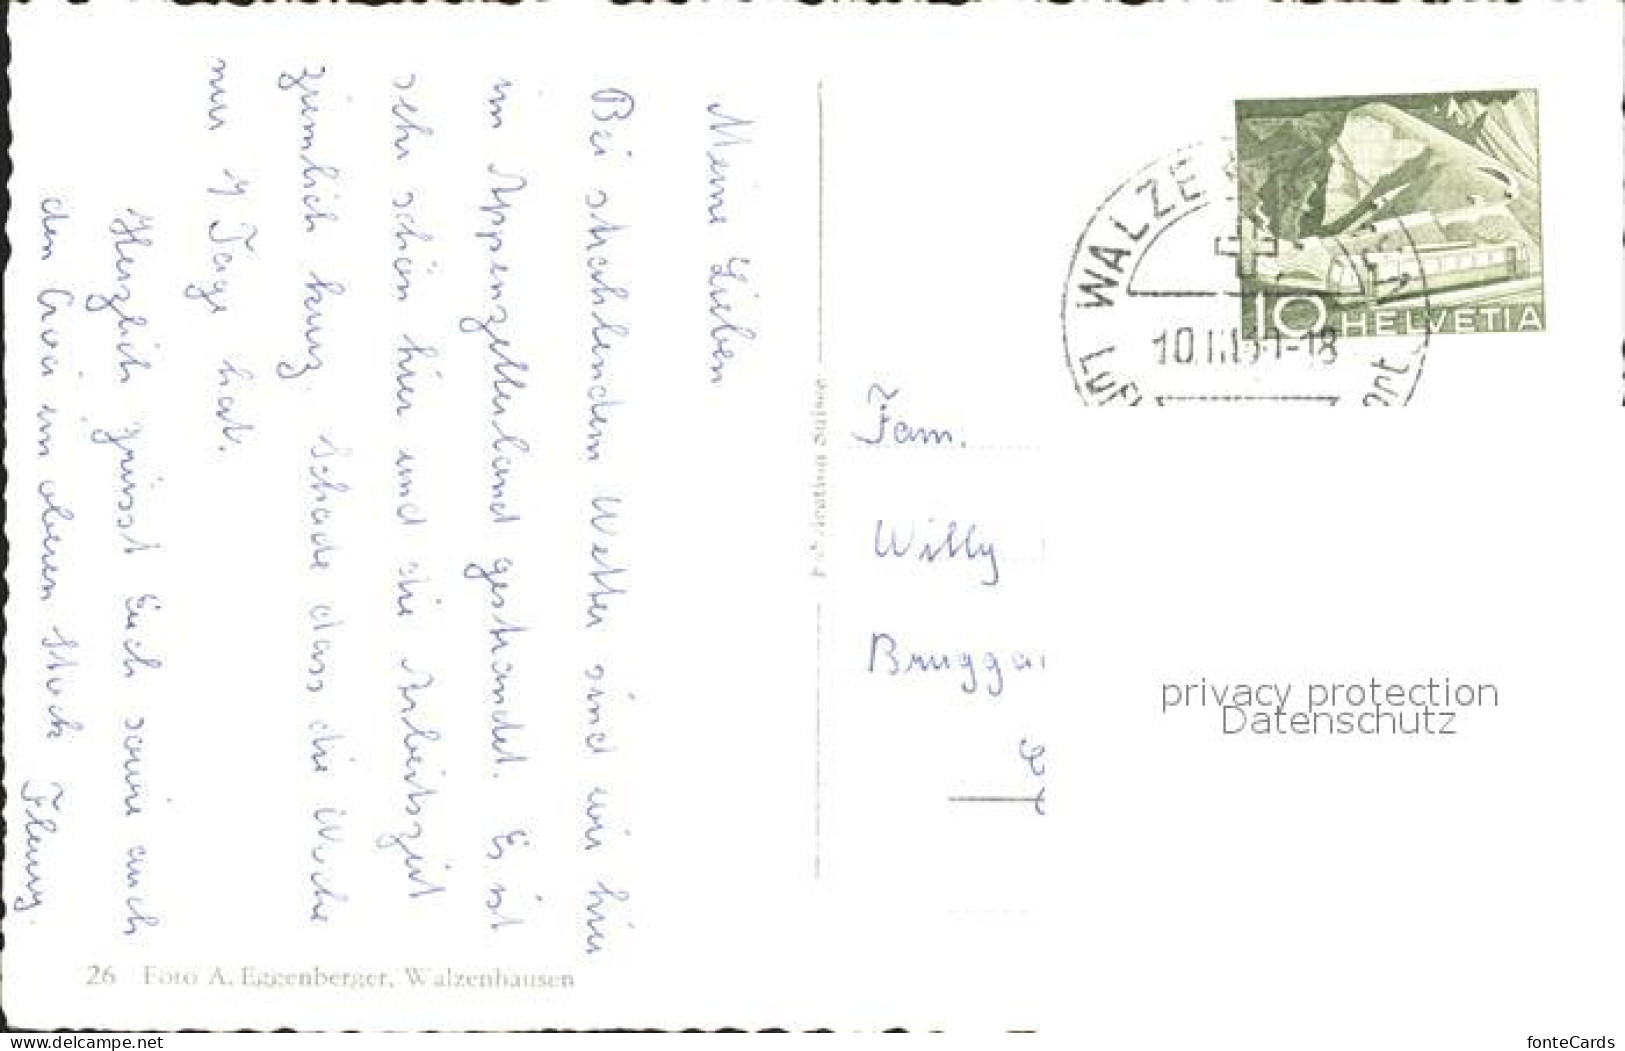 Meine Lieben
Bei strahlendem Wetter sind wir hier
im Appenzellerland gestrandet. Es ist
sehr schön hier und die Arbeitszeit
ziemlich kurz. Schade dass die Woche
nur 7 Tage hat.
Herzlich grüsst Euch sowie auch
den im oberen Stock
26 Foto A. Eggenberger, Walzenhausen
WALZENHAUSEN
Luftkurort
10
HELVETIA
Fam.
Willy
Brugga
privacy protection
Datenschutz
www.delcampe.net
fonteCards